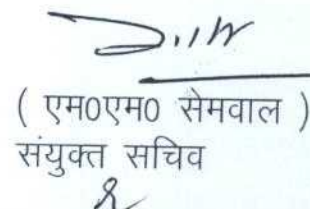 ( एम0एम0 सेमवाल )
संयुक्त सचिव